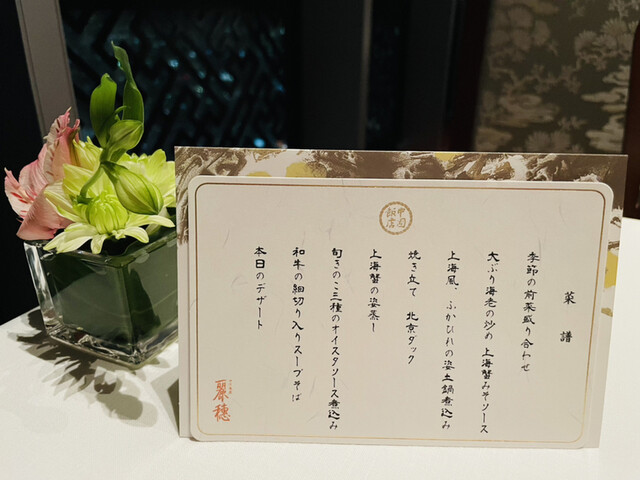 中国飯店
菜譜
季節の前菜盛り合わせ
大ぶり海老の炒め 上海蟹みそソース
上海風、ふかひれの姿土鍋煮込み
焼き立て 北京ダック
上海蟹の姿蒸し
旬きのこ三種のオイスタソース煮込み
和牛の細切り入りスープそば
本日のデザート
麗穂